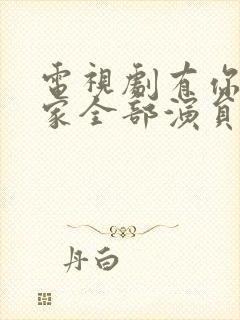 電視劇有你
家全部演員
丹白